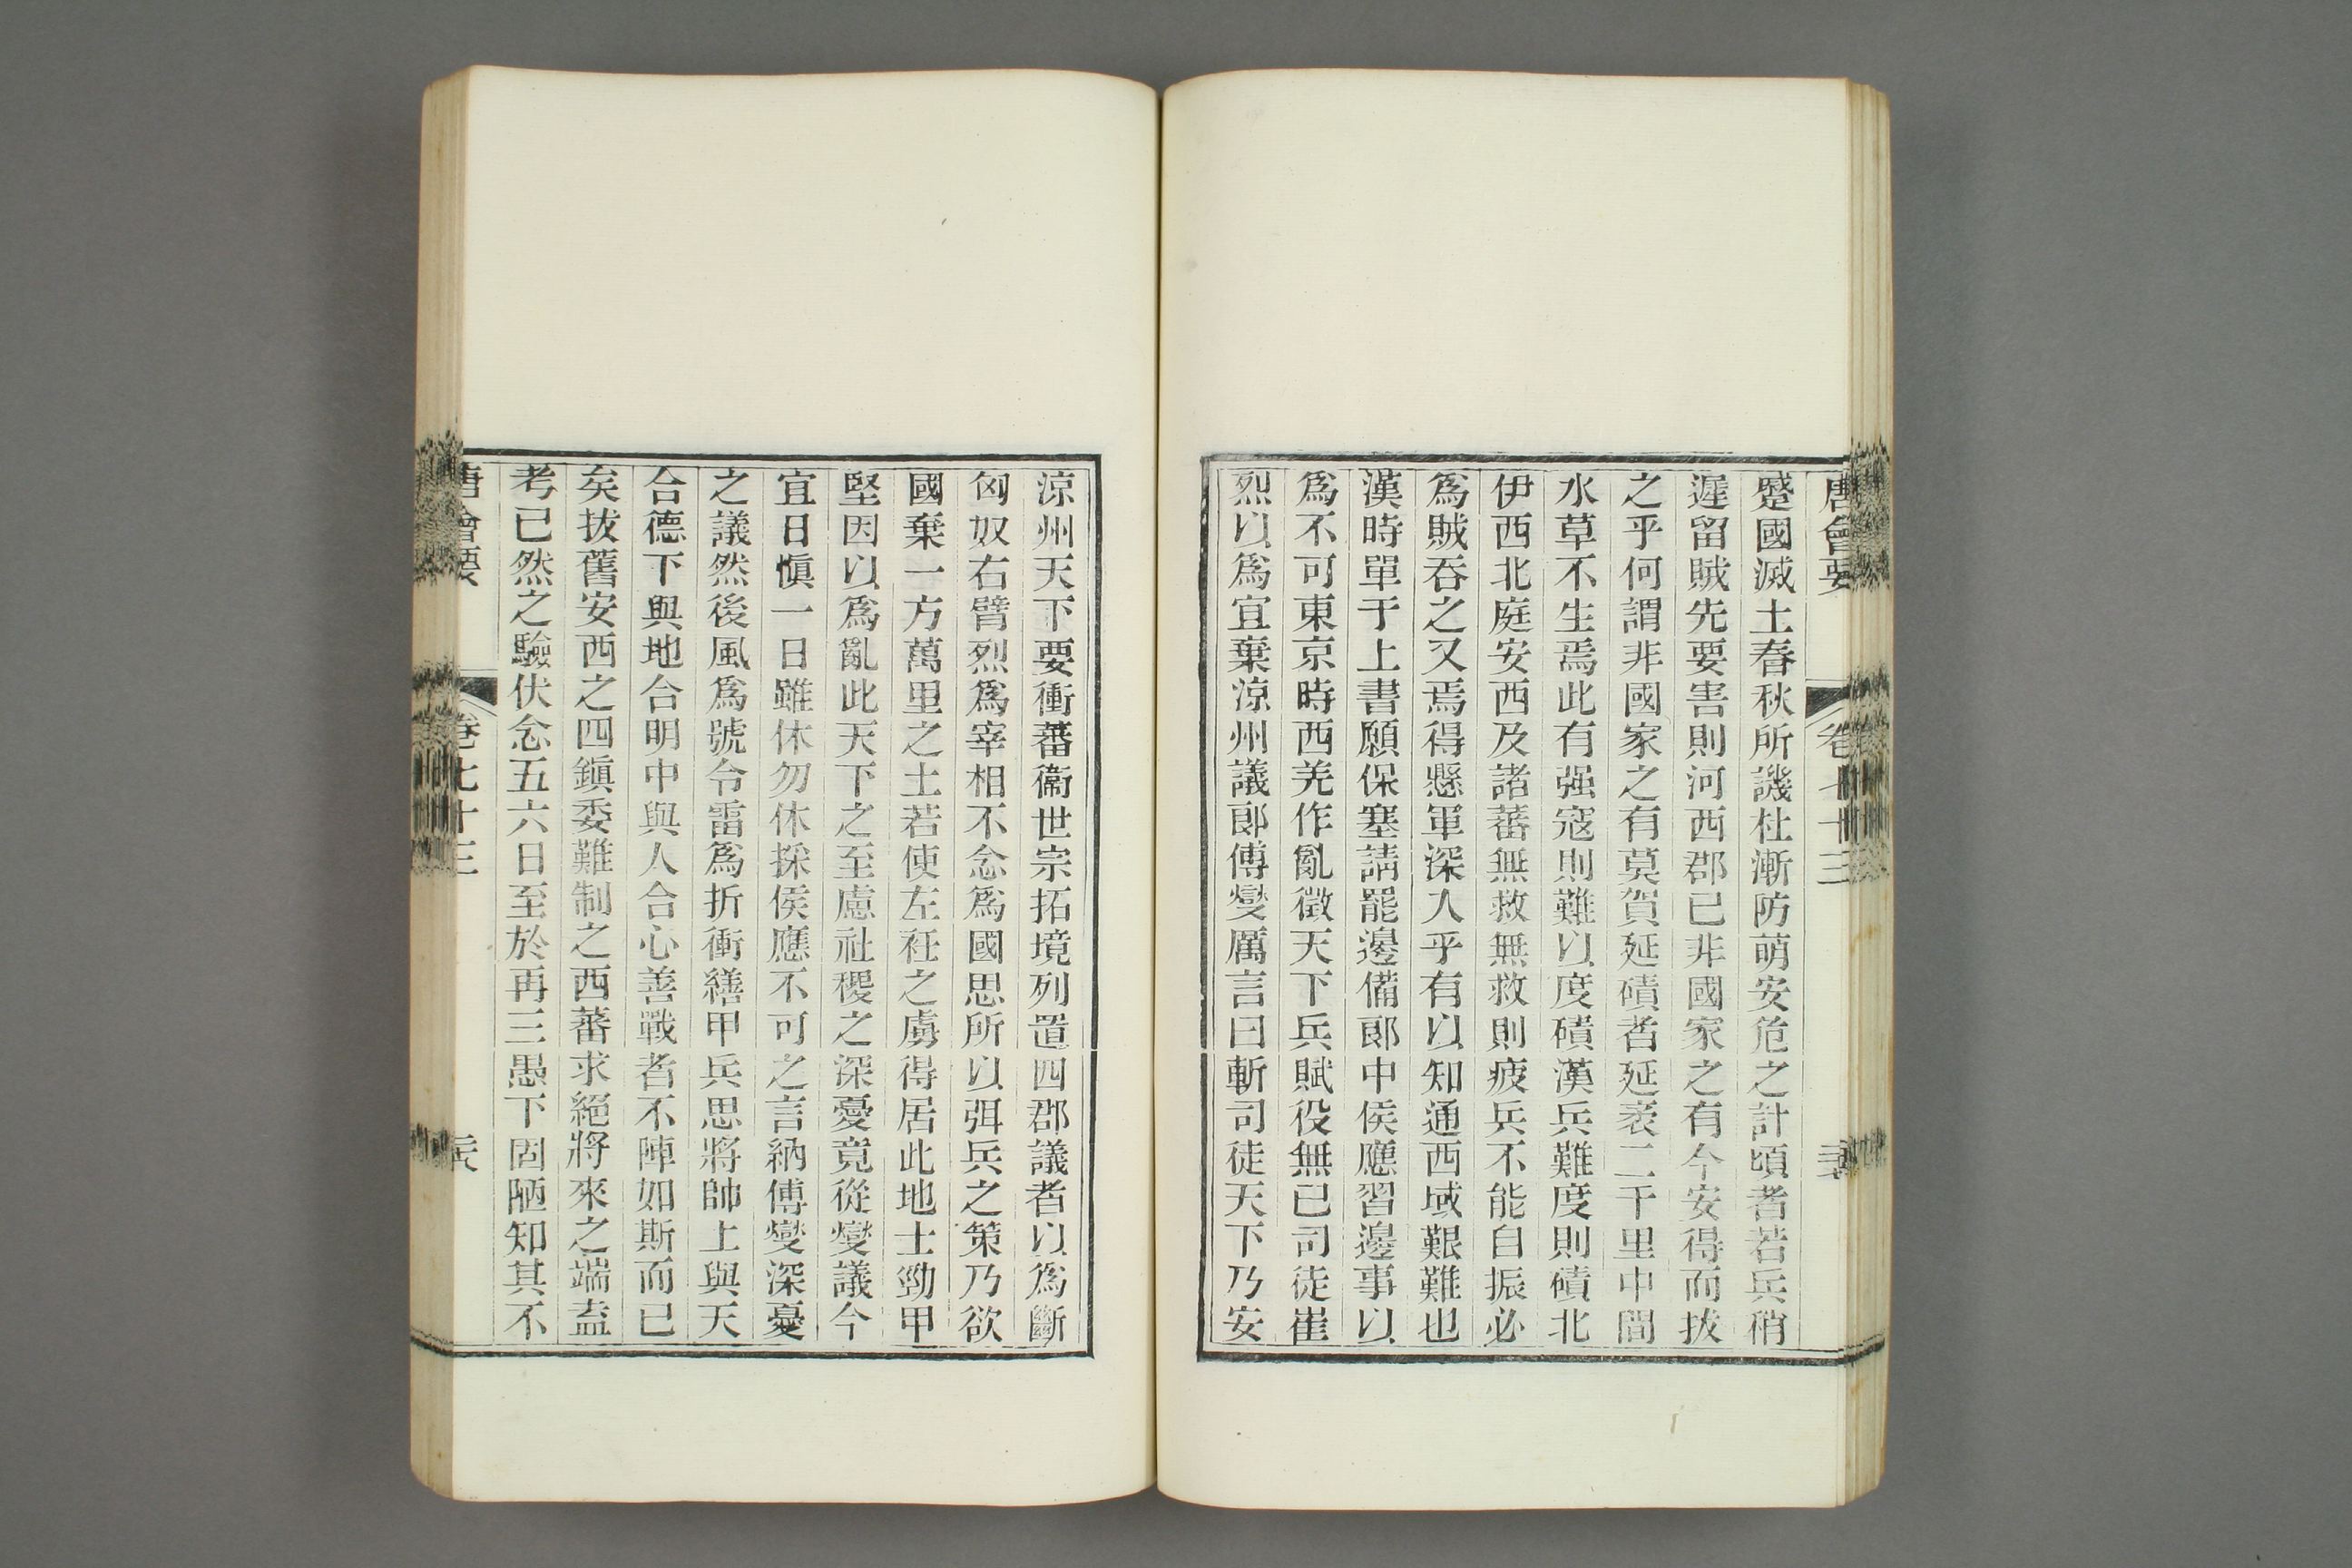 唐會要 卷七十三
蹙國滅土春秋所譏杜漸防萌安危之計頃者若兵稍
遲留賊先要害則河西郡已非國家之有今安得而拔
之乎何謂非國家之有莫賀延磧者延袤二千里中間
水草不生焉此有强寇則難以度磧漢兵難度則磧北
伊西北庭安西及諸蕃無救無救則疲兵不能自振必
爲賊吞之又焉得懸軍深入乎有以知通西域艱難也
漢時單于上書願保塞請罷邊備郎中侯應習邊事以
爲不可東京時西羌作亂徵天下兵賦役無已司徒崔
烈以爲宜棄涼州議郎傅燮厲言曰斬司徒天下乃安
涼州天下要衝蕃衞世宗拓境列置四郡議者以爲斷
匈奴右臂烈爲宰相不念爲國思所以弭兵之策乃欲
國棄一方萬里之土若使左衽之虜得居此地士勁甲
堅因以爲亂此天下之至慮社稷之深憂竟從燮議今
宜日愼一日雖休勿休採侯應不可之言納傅燮深憂
之議然後風爲號令雷爲折衝繕甲兵思將帥上與天
合德下與地合明中與人合心善戰者不陣如斯而已
矣拔舊安西之四鎭委難制之西蕃求絕將來之端盍
考已然之驗伏念五六日至於再三愚下固陋知其不
唐會要 卷七十三